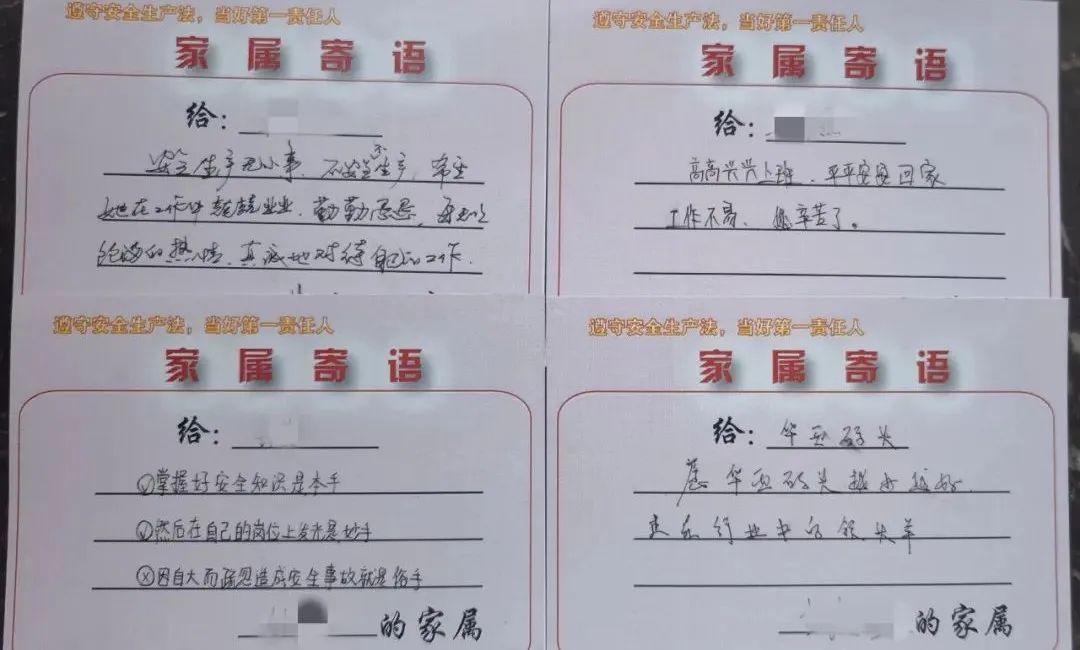 遵守安全生产法，当好第一责任人
家属寄语
给：
安全生产无小事，不安全不生产，希望
她在工作中兢兢业业、勤勤恳恳，再以
饱满的热情，真诚地对待自己的工作．
遵守安全生产法，当好第一责任人
家属寄语
给：
高高兴兴上班、平平安安回家
工作不易、您辛苦了。
遵守安全生产法，当好第一责任人
家属寄语
给：
掌握好安全知识是本手
然后在自己的岗位上发光是妙手
因自大而疏忽造成安全事故就是俗手
的家属
遵守安全生产法，当好第一责任人
家属寄语
给：华亚码头
愿华亚码头越办越好．
更在行业中的领头羊
的家属